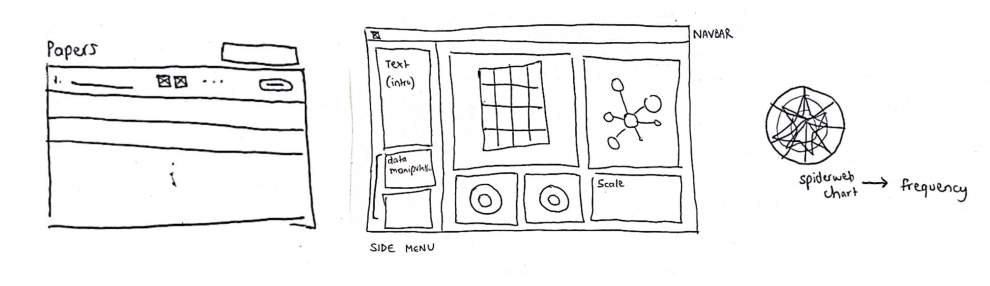 Papers
1.
...
NAVBAR
Text
(intro)
data
Scale
SIDE MENU
spiderweb
chart → frequency